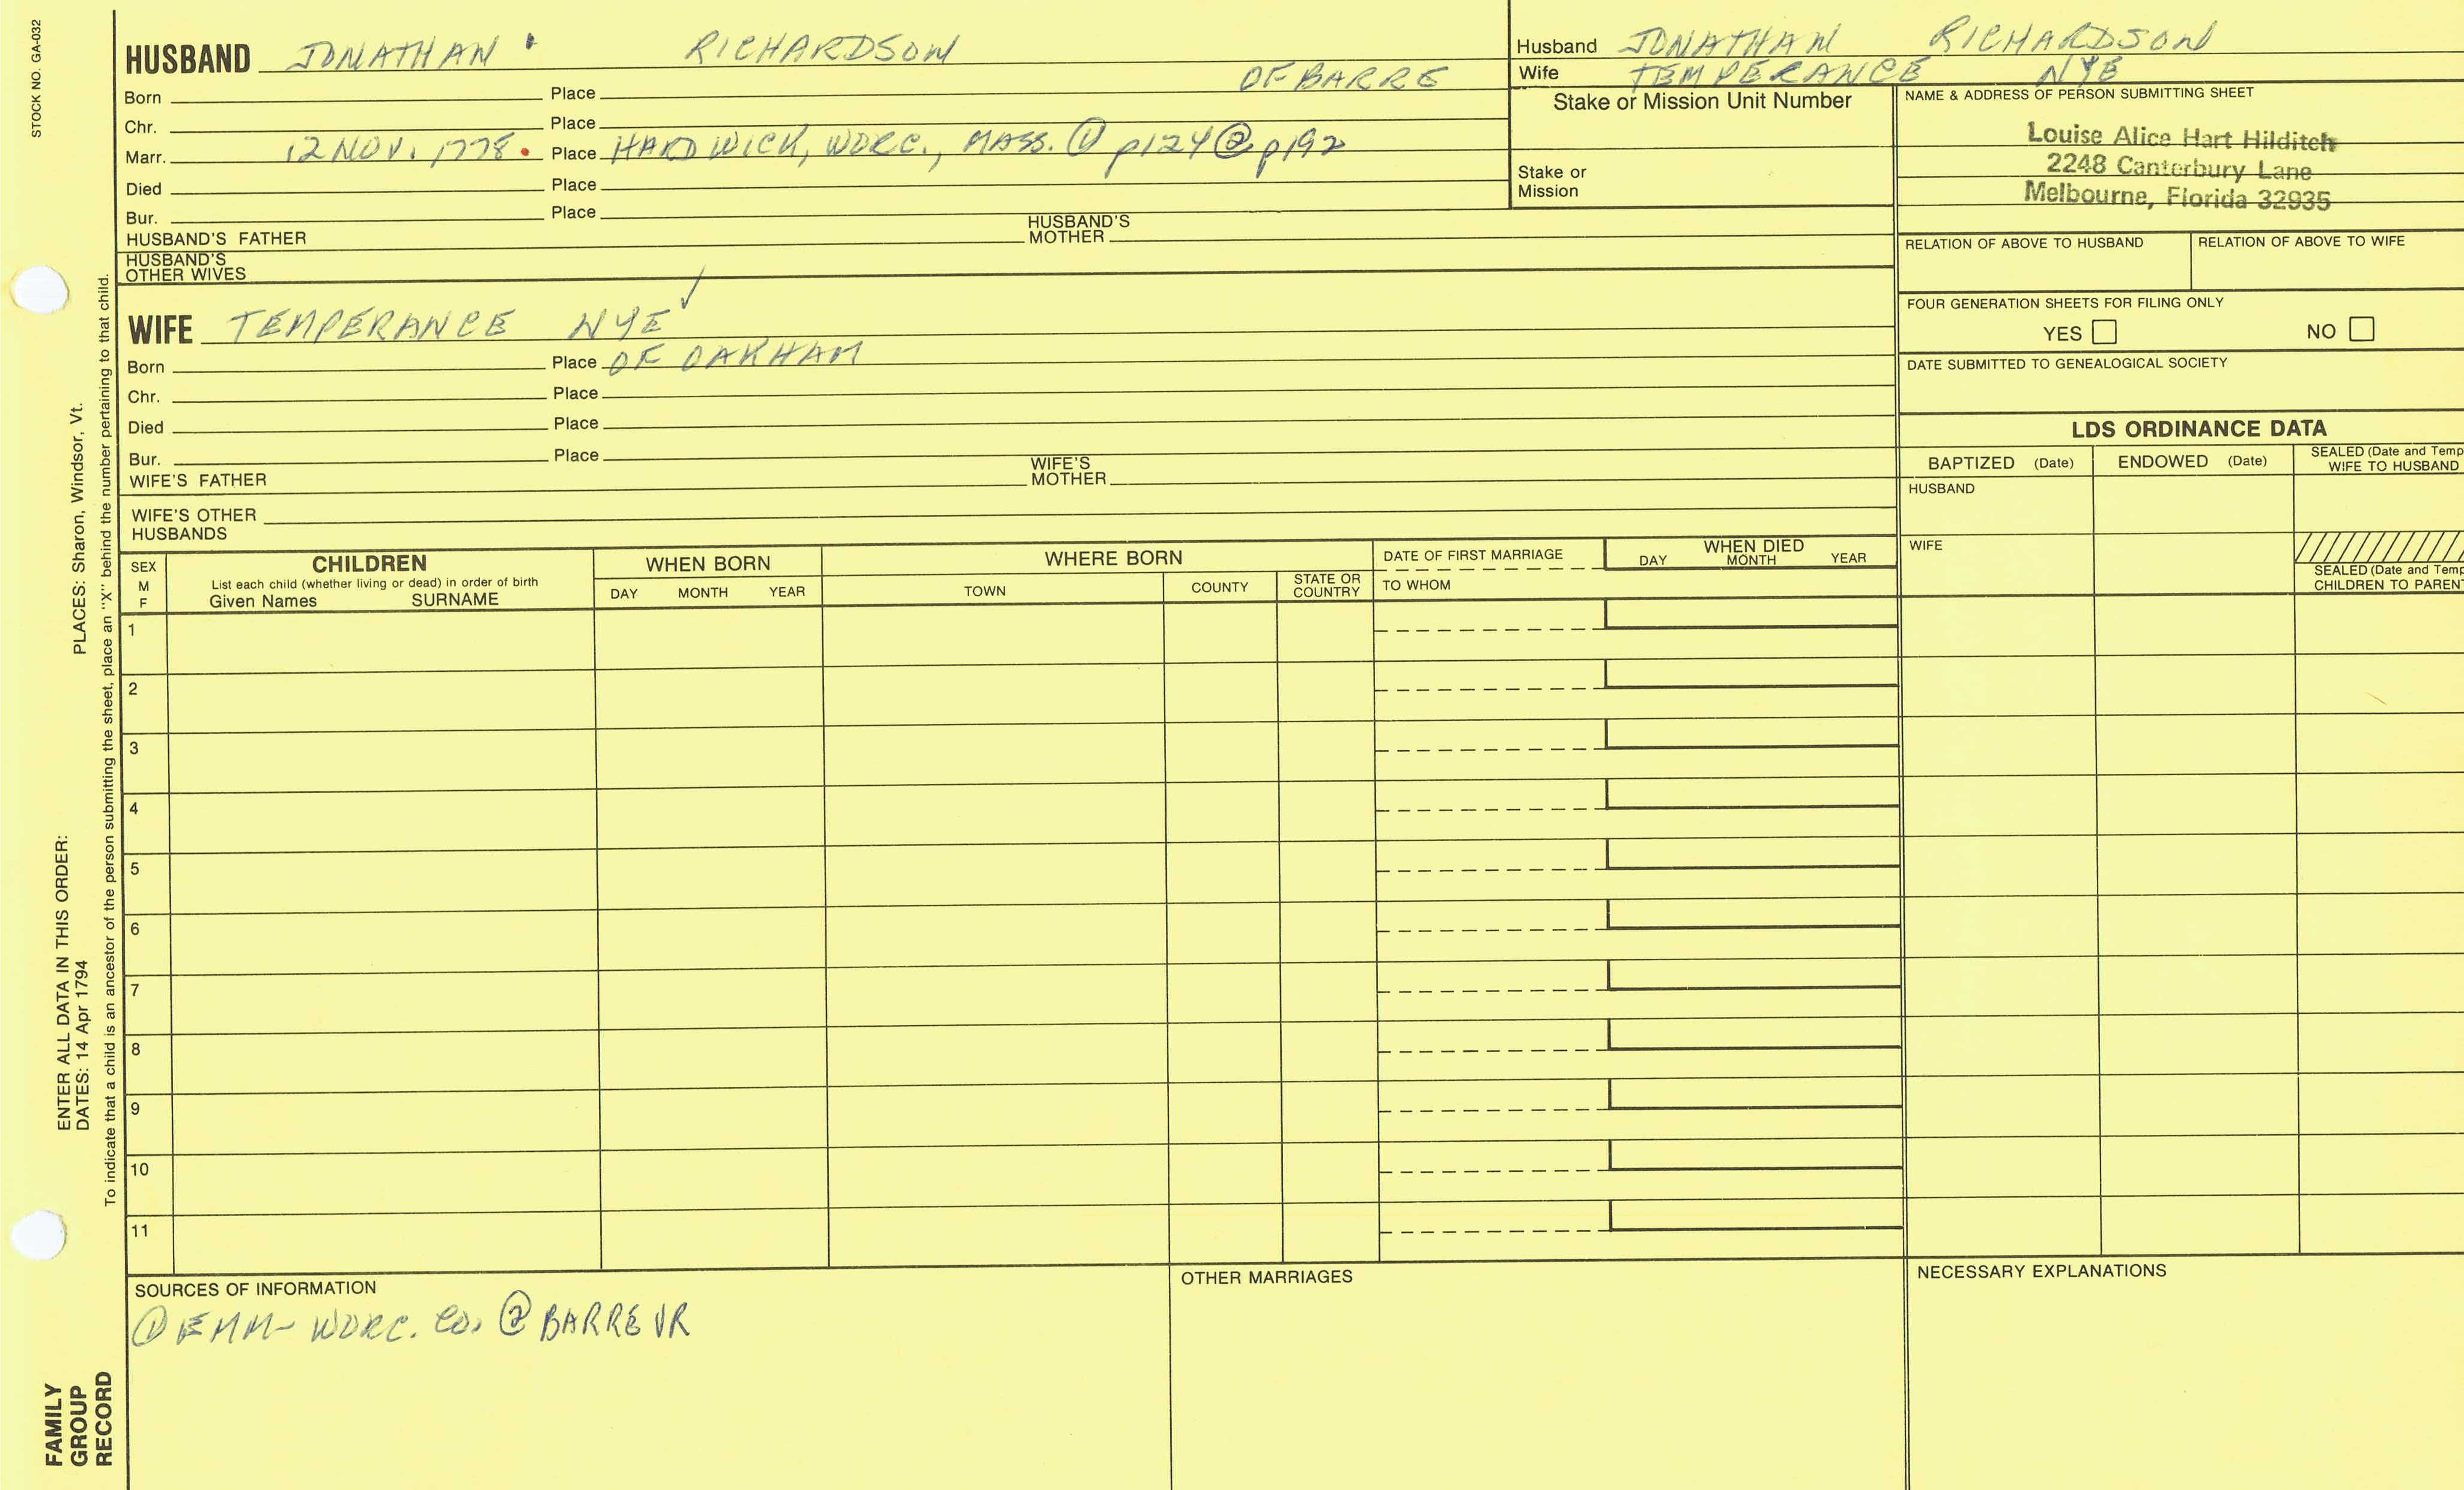 STOCK NO. GA-032
HUSBAND JONATHAN RICHARDSON
Born Place OF BARRE
Chr. Place
Marr. 12 NOV. 1778. Place HARDWICK, WORC., MASS. ① p124 ② p192
Died Place
Bur. Place
HUSBAND'S FATHER HUSBAND'S MOTHER
HUSBAND'S
OTHER WIVES
WIFE TEMPERANCE NYE ✓
Born Place OF OAKHAM
Chr. Place
Died Place
Bur. Place
WIFE'S FATHER WIFE'S MOTHER
WIFE'S OTHER
HUSBANDS
Husband JONATHAN RICHARDSON
Wife TEMPERANCE NYE
Stake or Mission Unit Number
Stake or
Mission
NAME & ADDRESS OF PERSON SUBMITTING SHEET
Louise Alice Hart Hilditch
2248 Canterbury Lane
Melbourne, Florida 32935
RELATION OF ABOVE TO HUSBAND RELATION OF ABOVE TO WIFE
FOUR GENERATION SHEETS FOR FILING ONLY
YES NO
DATE SUBMITTED TO GENEALOGICAL SOCIETY
LDS ORDINANCE DATA
BAPTIZED (Date) ENDOWED (Date) SEALED (Date and Temp
WIFE TO HUSBAND
HUSBAND
WIFE
SEALED (Date and Temp
CHILDREN TO PARENT
SEX
M
F
CHILDREN
List each child (whether living or dead) in order of birth
Given Names SURNAME
WHEN BORN
DAY MONTH YEAR
WHERE BORN
TOWN COUNTY STATE OR COUNTRY
DATE OF FIRST MARRIAGE
TO WHOM
WHEN DIED
DAY MONTH YEAR
1
2
3
4
5
6
7
8
9
10
11
SOURCES OF INFORMATION
① EMM- WORC. CO. ② BARRE VR
OTHER MARRIAGES
NECESSARY EXPLANATIONS
ENTER ALL DATA IN THIS ORDER:
DATES: 14 Apr 1794 PLACES: Sharon, Windsor, Vt.
To indicate that a child is an ancestor of the person submitting the sheet, place an "X" behind the number pertaining to that child.
FAMILY
GROUP
RECORD